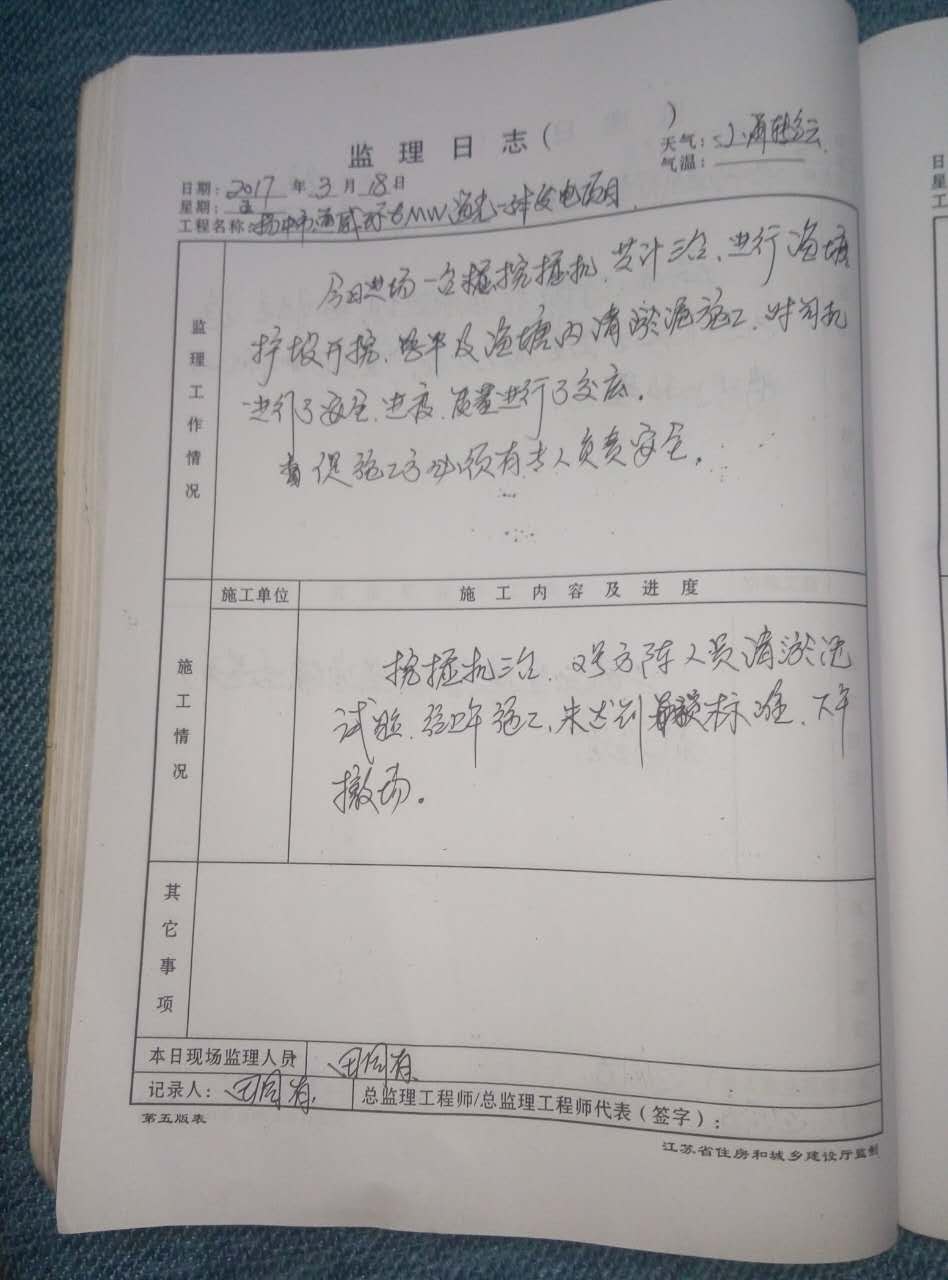 监理日志(          )
天气：小雨转多云
气温：
日期：2017 年 3 月 18 日
星期：五
工程名称：扬中市通威 MW渔光一体发电项目
监理工作情况
今日进场一台挖掘机，共计三台，进行渔塘
护坡开挖、整平及渔塘内清淤泥施工，对司机
进行了安全、进度、质量进行了交底。
督促施工方必须有专人负责安全。
施工情况
施工单位
施工内容及进度
挖掘机三台，2号方阵人员清淤泥
试验，经上午施工，未达到标准，下午
撤场。
其它事项
本日现场监理人员 田同有
记录人：田同有
总监理工程师/总监理工程师代表（签字）：
第五版表
江苏省住房和城乡建设厅监制